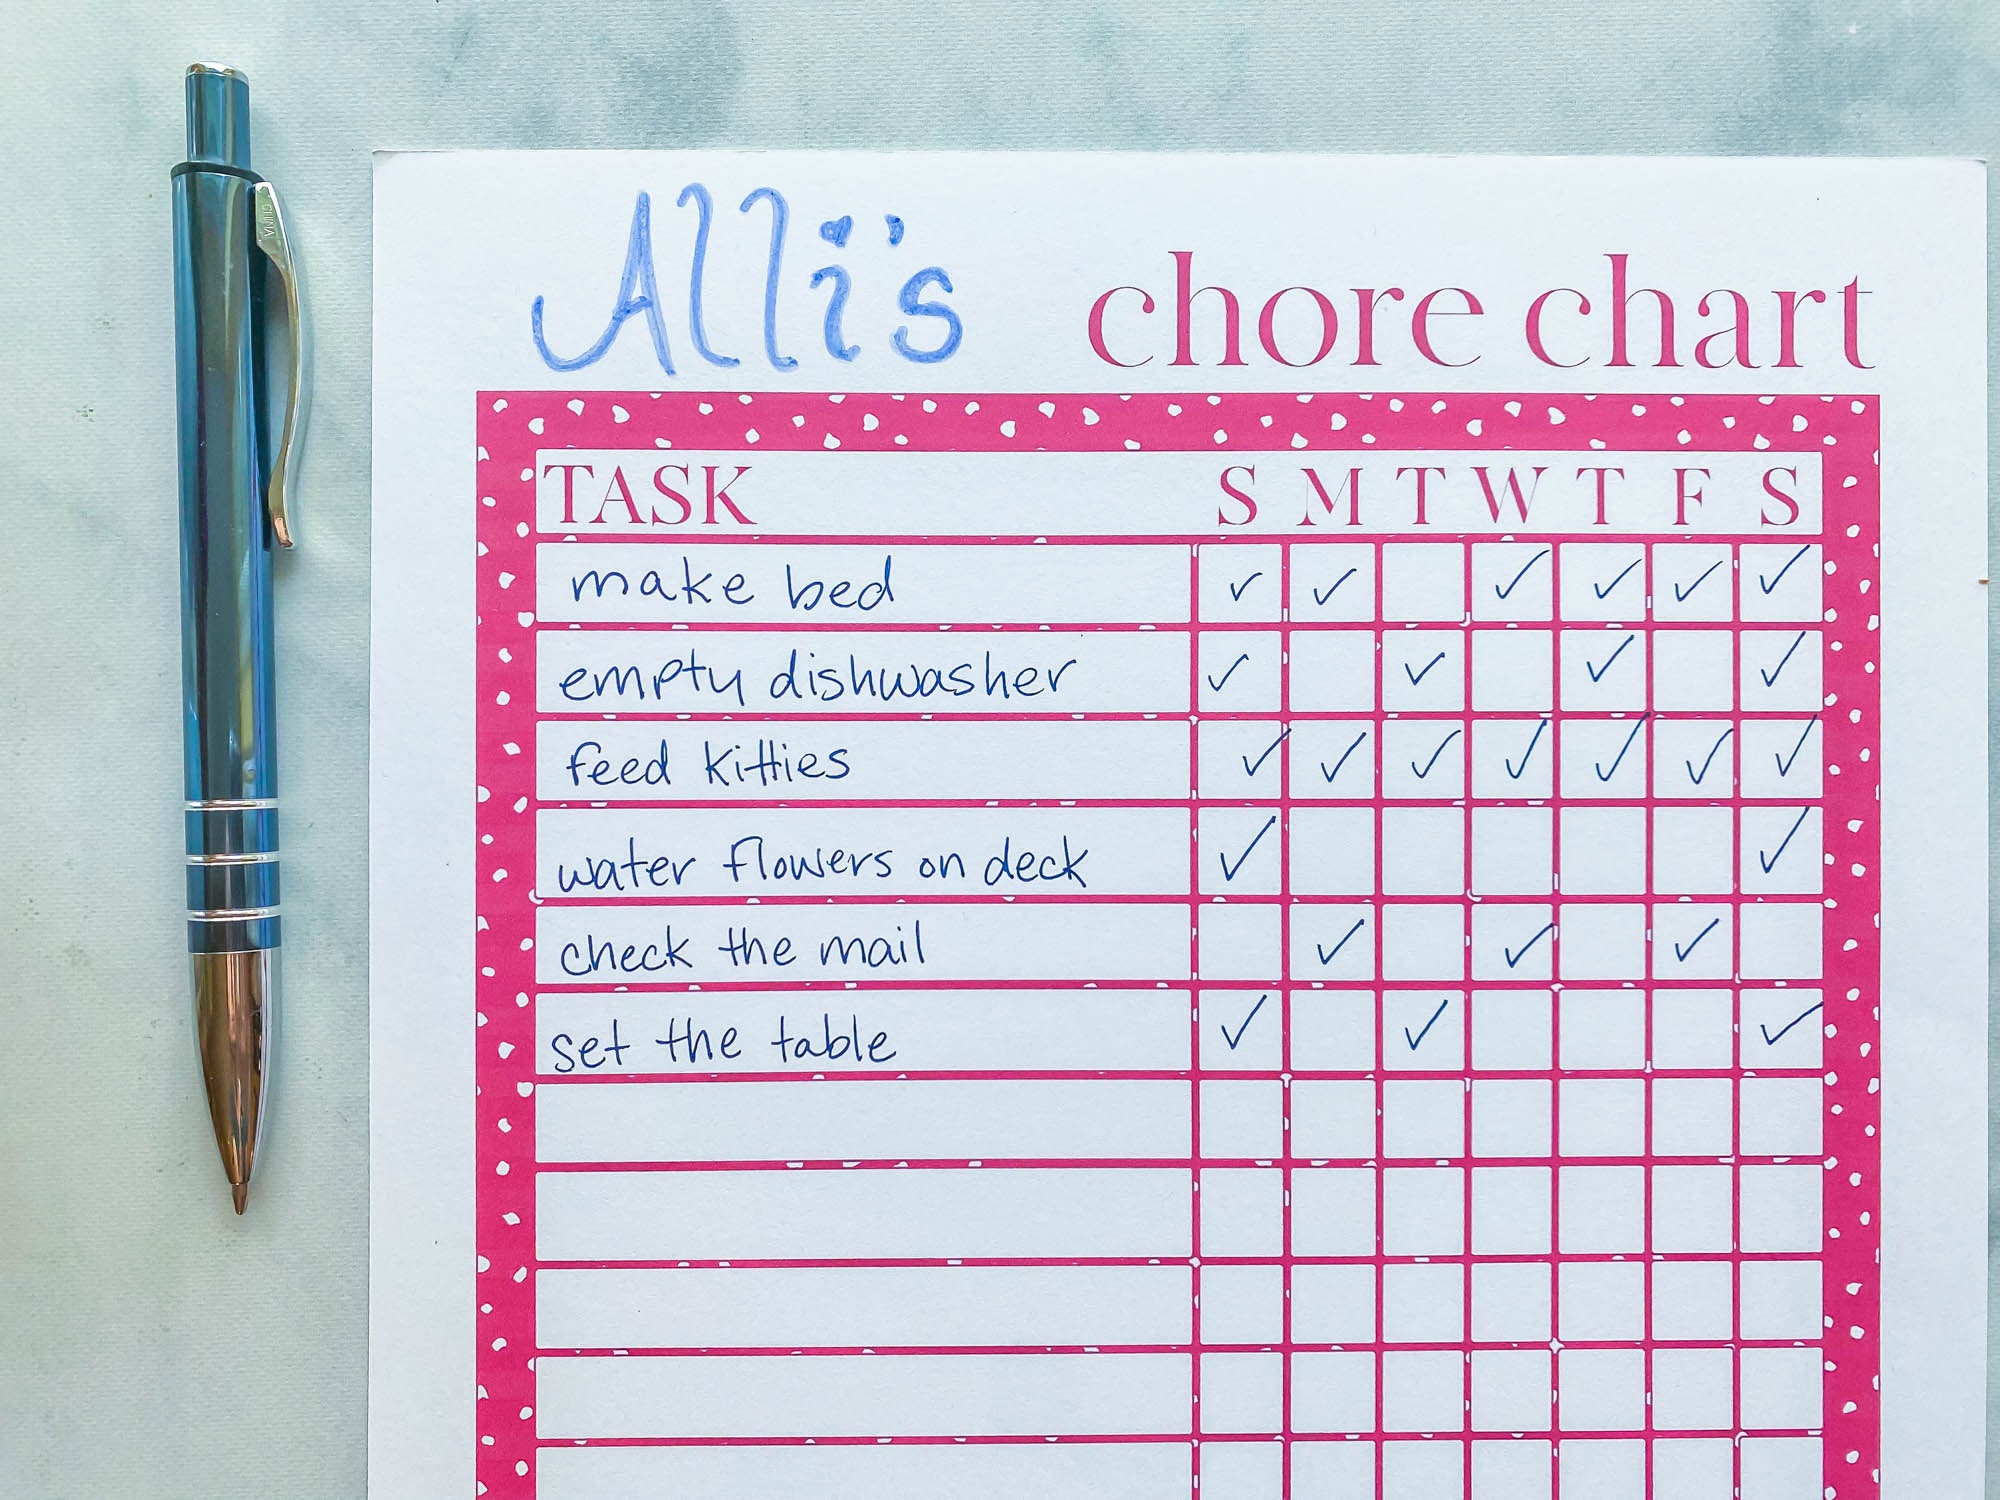 Alli's chore chart
TASK S M T W T F S
make bed ✓ ✓ ✓ ✓ ✓ ✓
empty dishwasher ✓ ✓ ✓ ✓
feed kitties ✓ ✓ ✓ ✓ ✓ ✓ ✓
water flowers on deck ✓ ✓
check the mail ✓ ✓ ✓
set the table ✓ ✓ ✓
CHINA